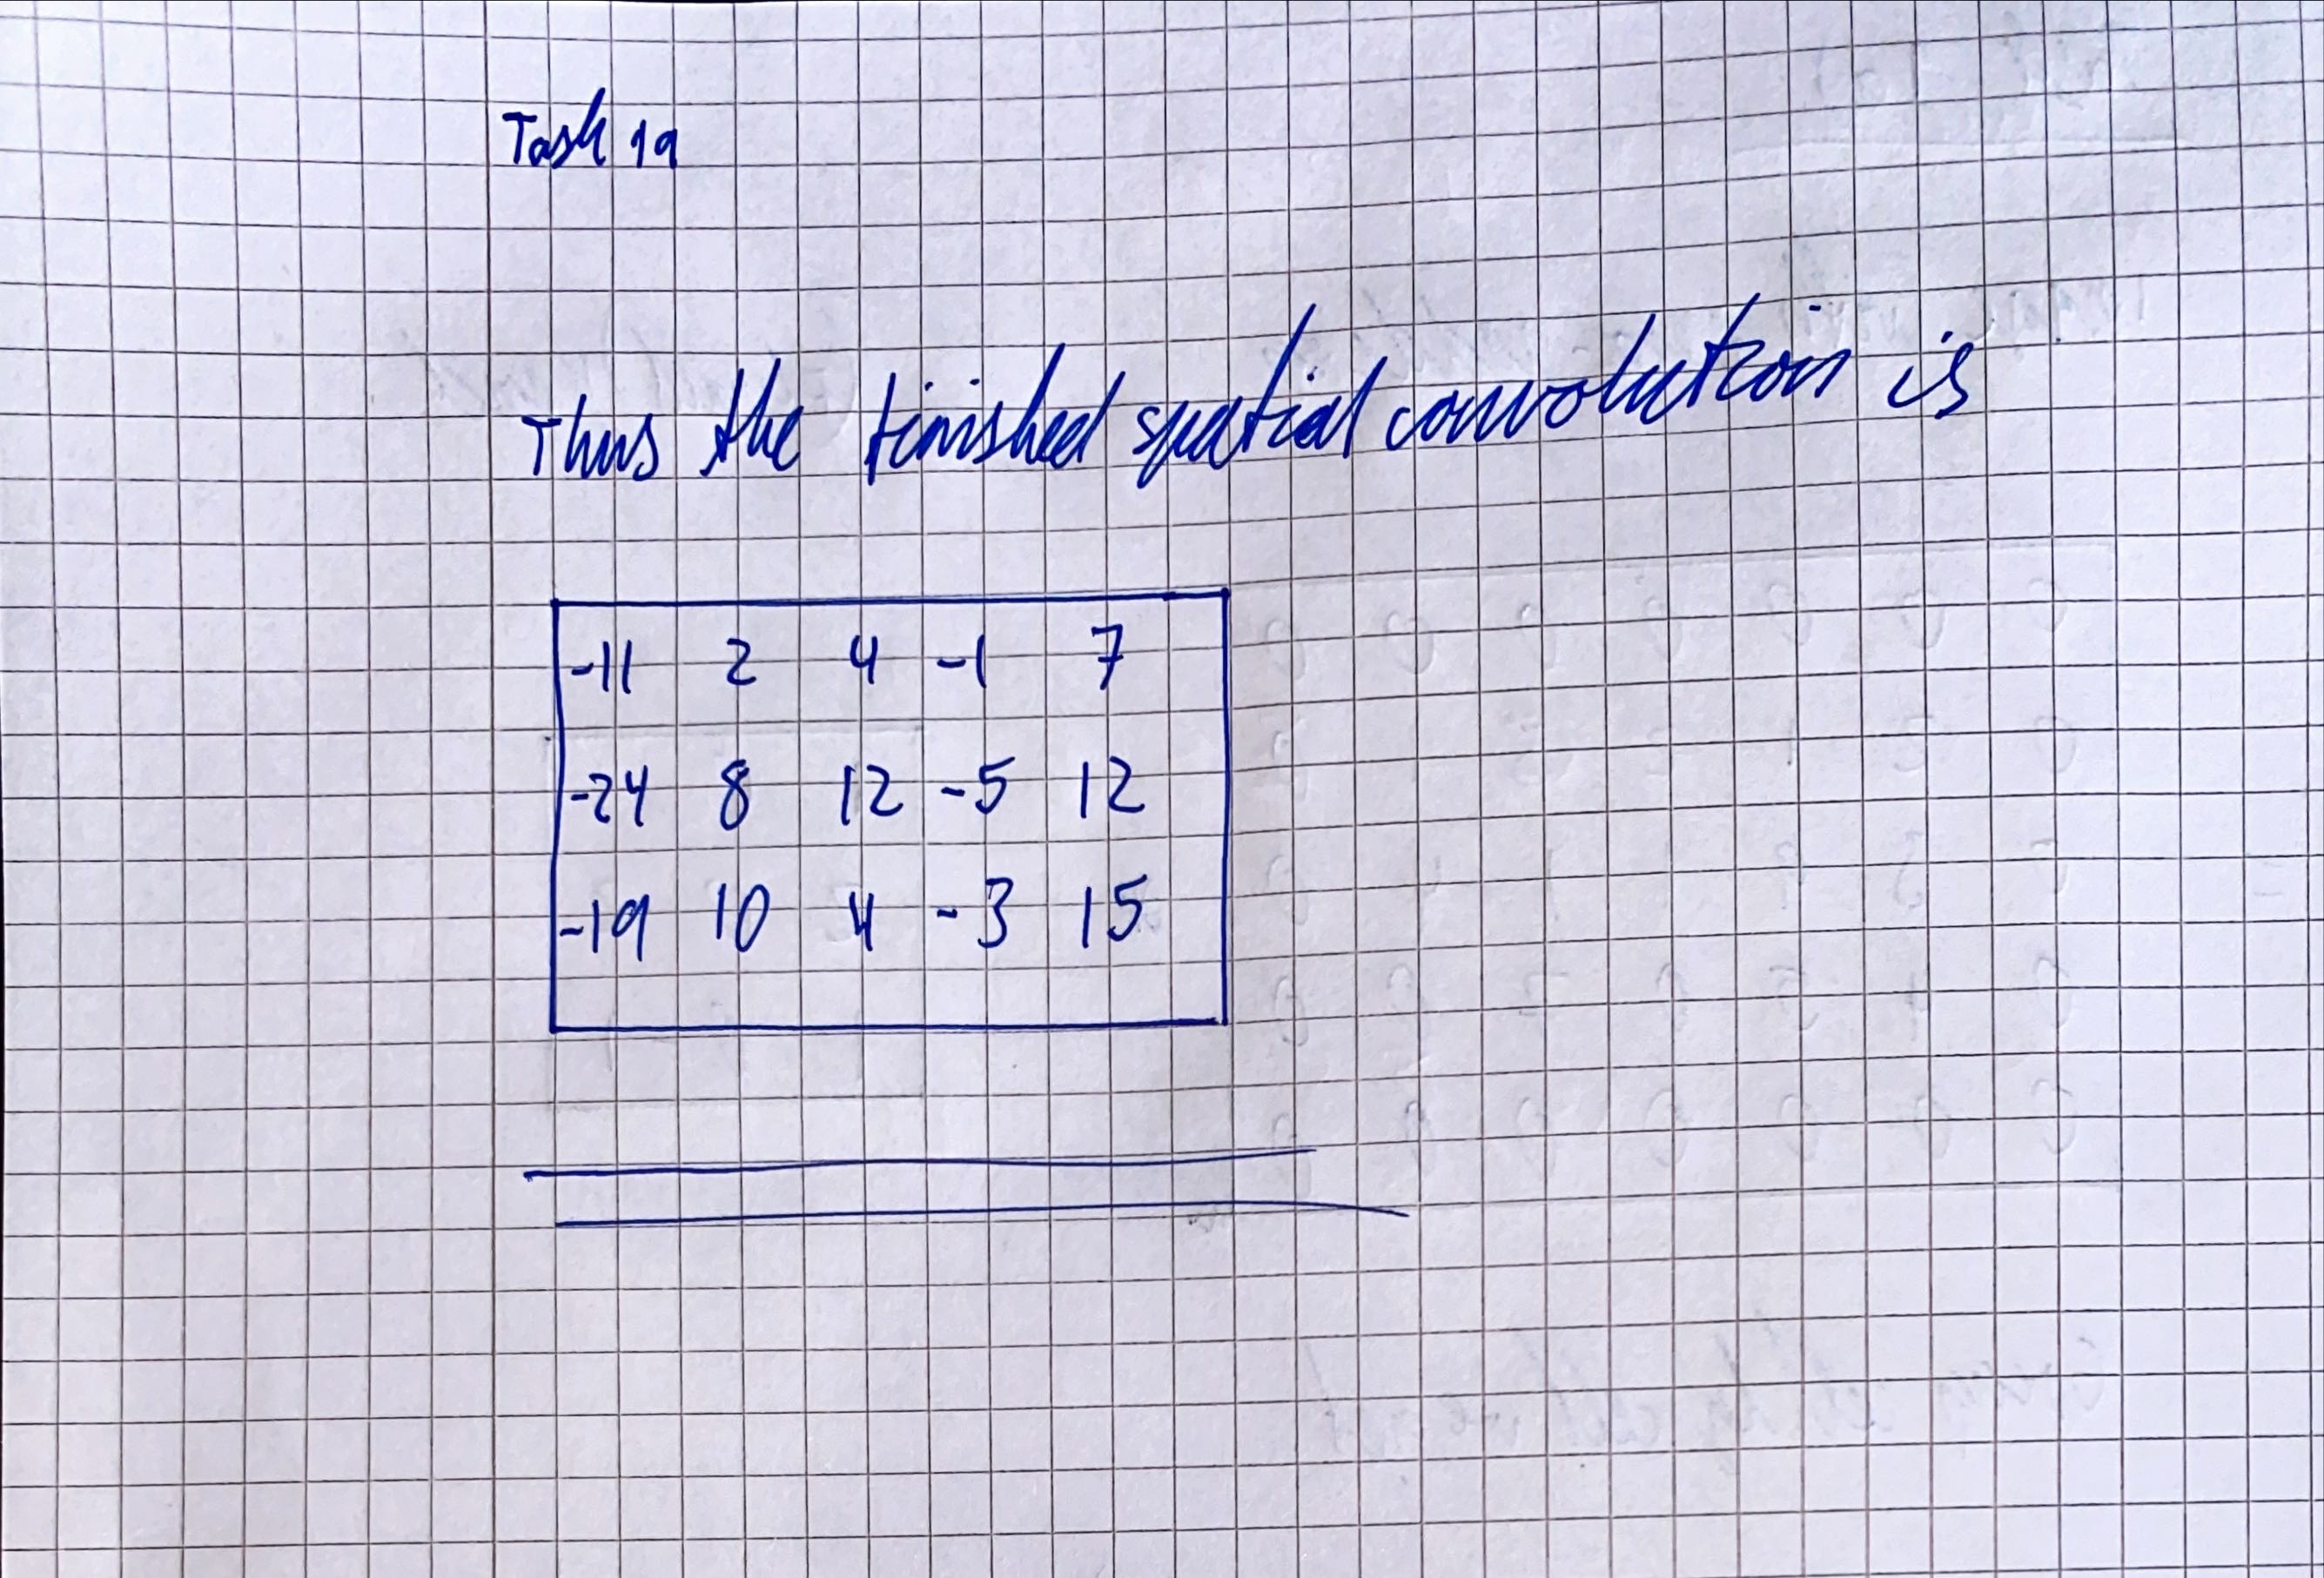 Task 1a
Thus the finished spatial convolution is
-11 2 4 -1 7
-24 8 12 -5 12
-19 10 4 -3 15